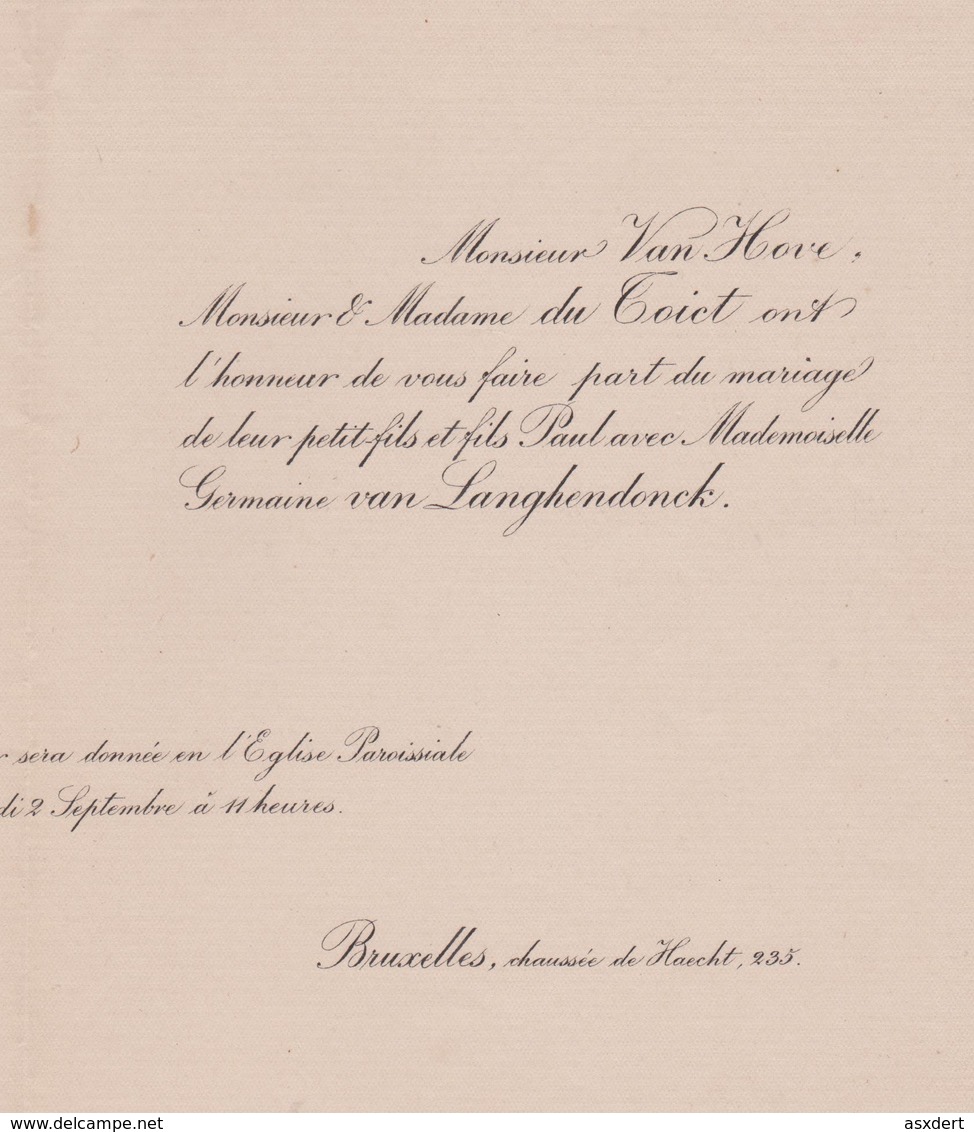 Monsieur Van Hove,
Monsieur & Madame du Toict ont
l'honneur de vous faire part du mariage
de leur petit-fils et fils Paul avec Mademoiselle
Germaine van Langhendonck.
r sera donnée en l'Eglise Paroissiale
di 2 Septembre à 11 heures.
Bruxelles, chaussée de Haecht, 235.
www.delcampe.net
asxdert